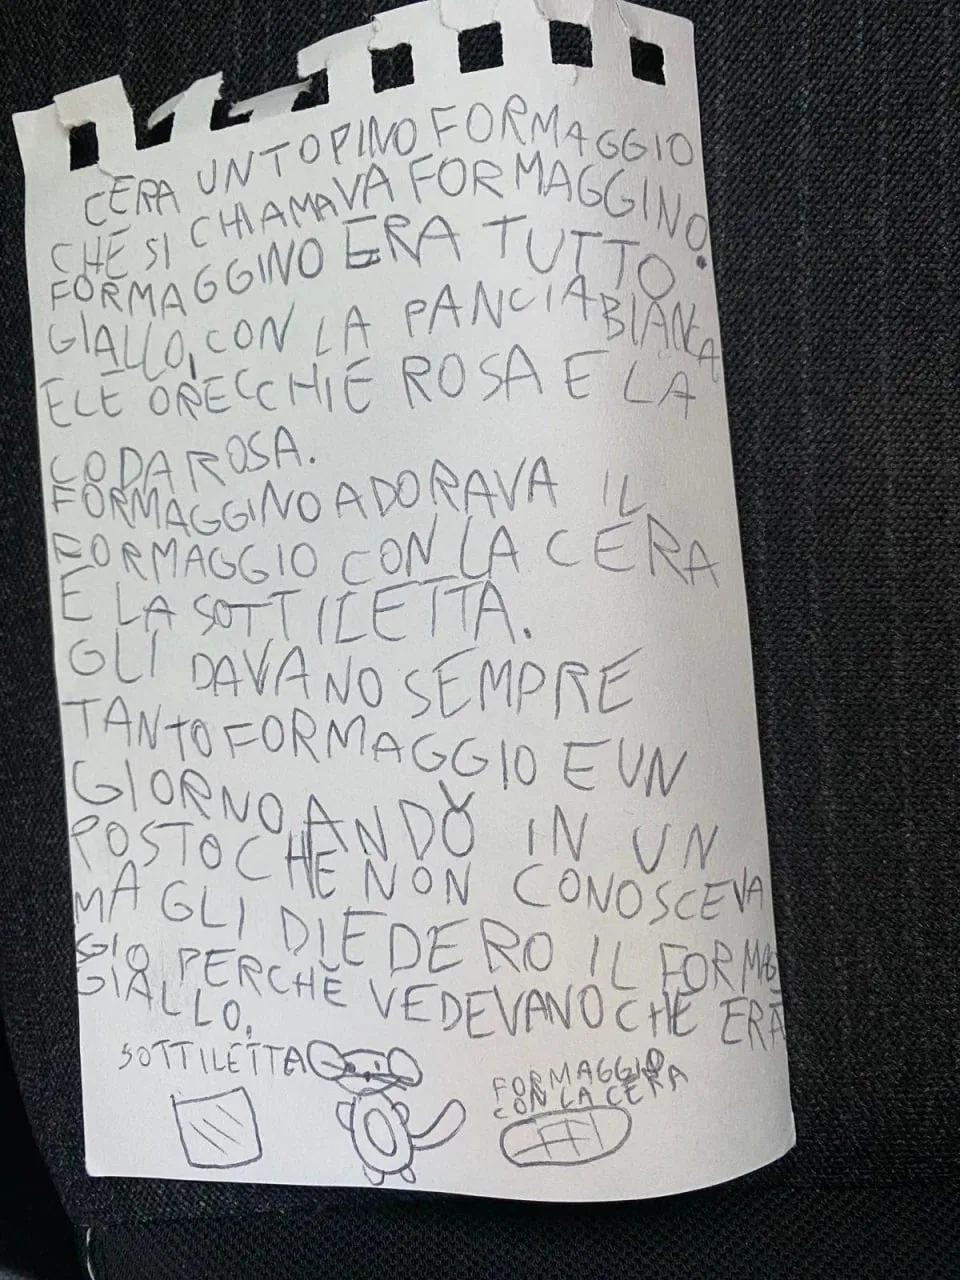 CERA UN TOPINO FORMAGGIO
CHE SI CHIAMAVA FORMAGGINO.
FORMAGGINO ERA TUTTO
GIALLO, CON LA PANCIA BIANCA
E LE ORECCHIE ROSA E LA
CODA ROSA.
FORMAGGINO ADORAVA IL
FORMAGGIO CON LA CERA
E LA SOTTILETTA.
GLI DAVANO SEMPRE
TANTO FORMAGGIO E UN
GIORNO ANDÒ IN UN
POSTO CHE NON CONOSCEVA
MA GLI DIEDERO IL FORMAG
GIO PERCHÈ VEDEVANO CHE ERA
GIALLO.
SOTTILETTA
FORMAGGIO
CON LA CERA